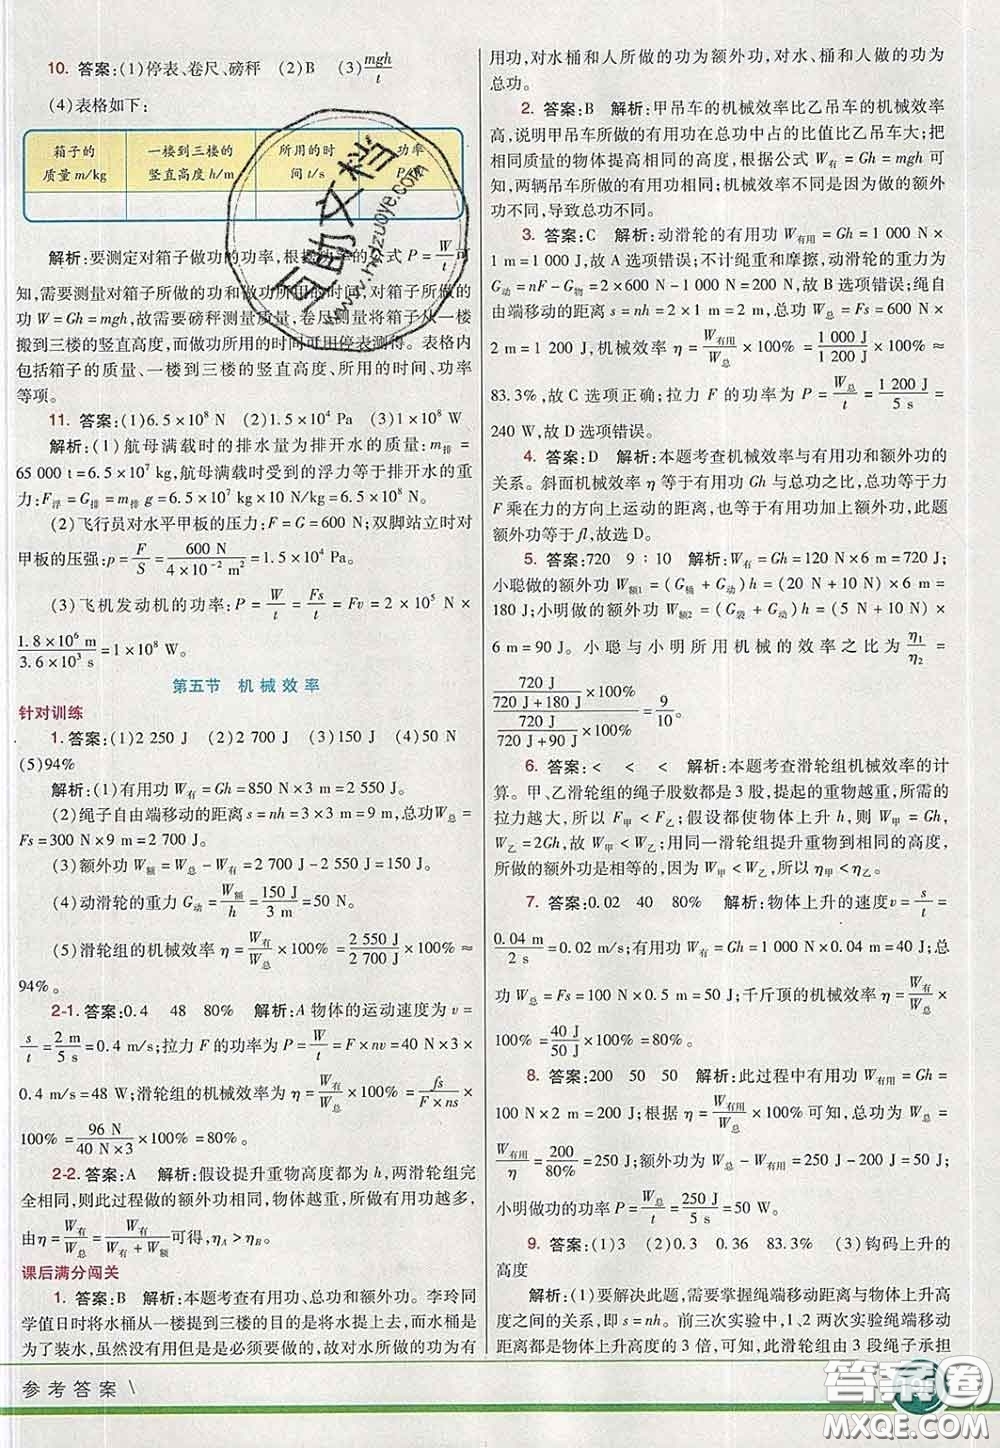 10. 答案:(1)停表、卷尺、磅秤 (2)B (3)mgh/t
(4)表格如下:
箱子的质量 m/kg 一楼到三楼的竖直高度 h/m 所用的时间 t/s 功率
解析:要测定对箱子做功的功率,根据功率的公式 P=W/t可
知,需要测量对箱子所做的功和做功所用的时间,对箱子所做的
功 W=Gh=mgh,故需要磅秤测量质量、卷尺测量将箱子从一楼
搬到三楼的竖直高度,而做功所用的时间可用停表测得。表格
内包括箱子的质量、一楼到三楼的竖直高度、所用的时间、功率
等项。
11. 答案:(1)6.5×10⁸ N (2)1.5×10⁴ Pa (3)1×10⁸ W
解析:(1)航母满载时的排水量为排开水的质量:m排=
65 000 t=6.5×10⁷ kg,航母满载时受到的浮力等于排开水的重
力:F浮=G排=m排g=6.5×10⁷ kg×10 N/kg=6.5×10⁸ N。
(2)飞行员对水平甲板的压力:F=G=600 N;双脚站立时对
甲板的压强:p=F/S=600 N/(4×10⁻² m²)=1.5×10⁴ Pa。
(3)飞机发动机的功率:P=W/t=Fs/t=Fv=2×10⁵ N×
1.8×10⁶ m/3.6×10³ s=1×10⁸ W。
第五节 机械效率
针对训练
1. 答案:(1)2 250 J (2)2 700 J (3)150 J (4)50 N
(5)94%
解析:(1)有用功 W有=Gh=850 N×3 m=2 550 J。
(2)绳子自由端移动的距离 s=nh=3×3 m=9 m,总功W总=
Fs=300 N×9 m=2 700 J。
(3)额外功 W额=W总-W有=2 700 J-2 550 J=150 J。
(4)动滑轮的重力 G动=W额/h=150 J/3 m=50 N。
(5)滑轮组的机械效率 η=W有/W总×100%=2 550 J/2 700 J×100%≈
94%。
2-1. 答案:0.4 48 80% 解析:A 物体的运动速度为 v=
s/t=2 m/5 s=0.4 m/s;拉力 F 的功率为 P=W/t=F×nv=40 N×3×
0.4 m/s=48 W;滑轮组的机械效率为 η=W有/W总×100%=fs/(F×ns)×
100%=96 N/(40 N×3)×100%=80%。
2-2. 答案:A 解析:假设提升重物高度都为 h,两滑轮组完
全相同,则此过程做的额外功相同,物体越重,所做有用功越多,
由η=W有/W总=W有/(W有+W额)可得,ηA>ηB。
课后满分闯关
1. 答案:B 解析:本题考查有用功、总功和额外功。李玲同
学值日时将水桶从一楼提到三楼的目的是将水提上去,而水桶是
为了装水,虽然没有用但又不得不做的功,故对水所做的功为有
用功,对水桶和人所做的功为额外功,对水、桶和人做的功为
总功。
2. 答案:B 解析:甲吊车的机械效率比乙吊车的机械效率
高,说明甲吊车所做的有用功在总功中占的比值比乙吊车大;把
相同质量的物体提高相同的高度,根据公式 W有=Gh=mgh 可
知,两辆吊车所做的有用功相同;机械效率不同是因为做的额外
功不同,导致总功不同。
3. 答案:C 解析:动滑轮的有用功 W有用=Gh=1 000 N
×1 m=1 000 J,故 A 选项错误;不计绳重和摩擦,动滑轮的重力为
G动=nF-G物=2×600 N-1 000 N=200 N,故 B 选项错误;绳自
由端移动的距离 s=nh=2×1 m=2 m,总功 W总=Fs=600 N×
2 m=1 200 J,机械效率 η=W有用/W总×100%=1 000 J/1 200 J×100%≈
83.3%,故 C 选项正确;拉力 F 的功率为 P=W总/t=1 200 J/5 s=
240 W,故 D 选项错误。
4. 答案:D 解析:本题考查机械效率与有用功和额外功的
关系。斜面机械效率 η 等于有用功Gh与总功之比,总功等于力
F乘在力的方向上运动的距离,也等于有用功加上额外功,此题
额外功等于 fl,故选 D。
5. 答案:720 9:10 解析:W有=Gh=120 N×6 m=720 J;
小聪做的额外功 W额1=(G桶+G动)h=(20 N+10 N)×6 m=
180 J;小明做的额外功 W额2=(G袋+G动)h=(5 N+10 N)×
6 m=90 J。小聪与小明所用机械的效率之比为 η1/η2=
(720 J/(720 J+180 J)×100%)/(720 J/(720 J+90 J)×100%)=9/10。
6. 答案:< < < 解析:本题考查滑轮组机械效率的计
算。甲、乙滑轮组的绳子股数都是 3 股,提起的重物越重,所需的
拉力越大,所以 F甲<F乙;假设都使物体上升 h,则 W甲=Gh,
W乙=2Gh,故 W甲<W乙;用同一滑轮组提升重物到相同的高度,
所做的额外功是相等的,因为 W甲<W乙,所以η甲<η乙。
7. 答案:0.02 40 80% 解析:物体上升的速度v=s/t=
0.04 m/2 s=0.02 m/s;有用功 W有=Gh=1 000 N×0.04 m=40 J;总
功 W总=Fs=100 N×0.5 m=50 J;千斤顶的机械效率 η=W有/W总×
100%=40 J/50 J×100%=80%。
8. 答案:200 50 50 解析:此过程中有用功 W有用=Gh=
100 N×2 m=200 J;根据 η=W有用/W总×100%可知,总功为 W总=
W有用/η=200/80%=250 J;额外功为 W总-W有用=250 J-200 J=50 J;
小明做功的功率 P=W总/t=250 J/5 s=50 W。
9. 答案:(1)3 (2)0.3 0.36 83.3% (3)钩码上升的
高度
解析:(1)要解决此题,需要掌握绳端移动距离与物体上升高
度之间的关系,即 s=nh。前三次实验中,1、2 两次实验绳端移动
距离都是物体上升高度的 3 倍,可知,此滑轮组由 3 段绳子承担
参考答案 \
互助文档
www.hdzuoye.com
答案圈
MXQE.COM